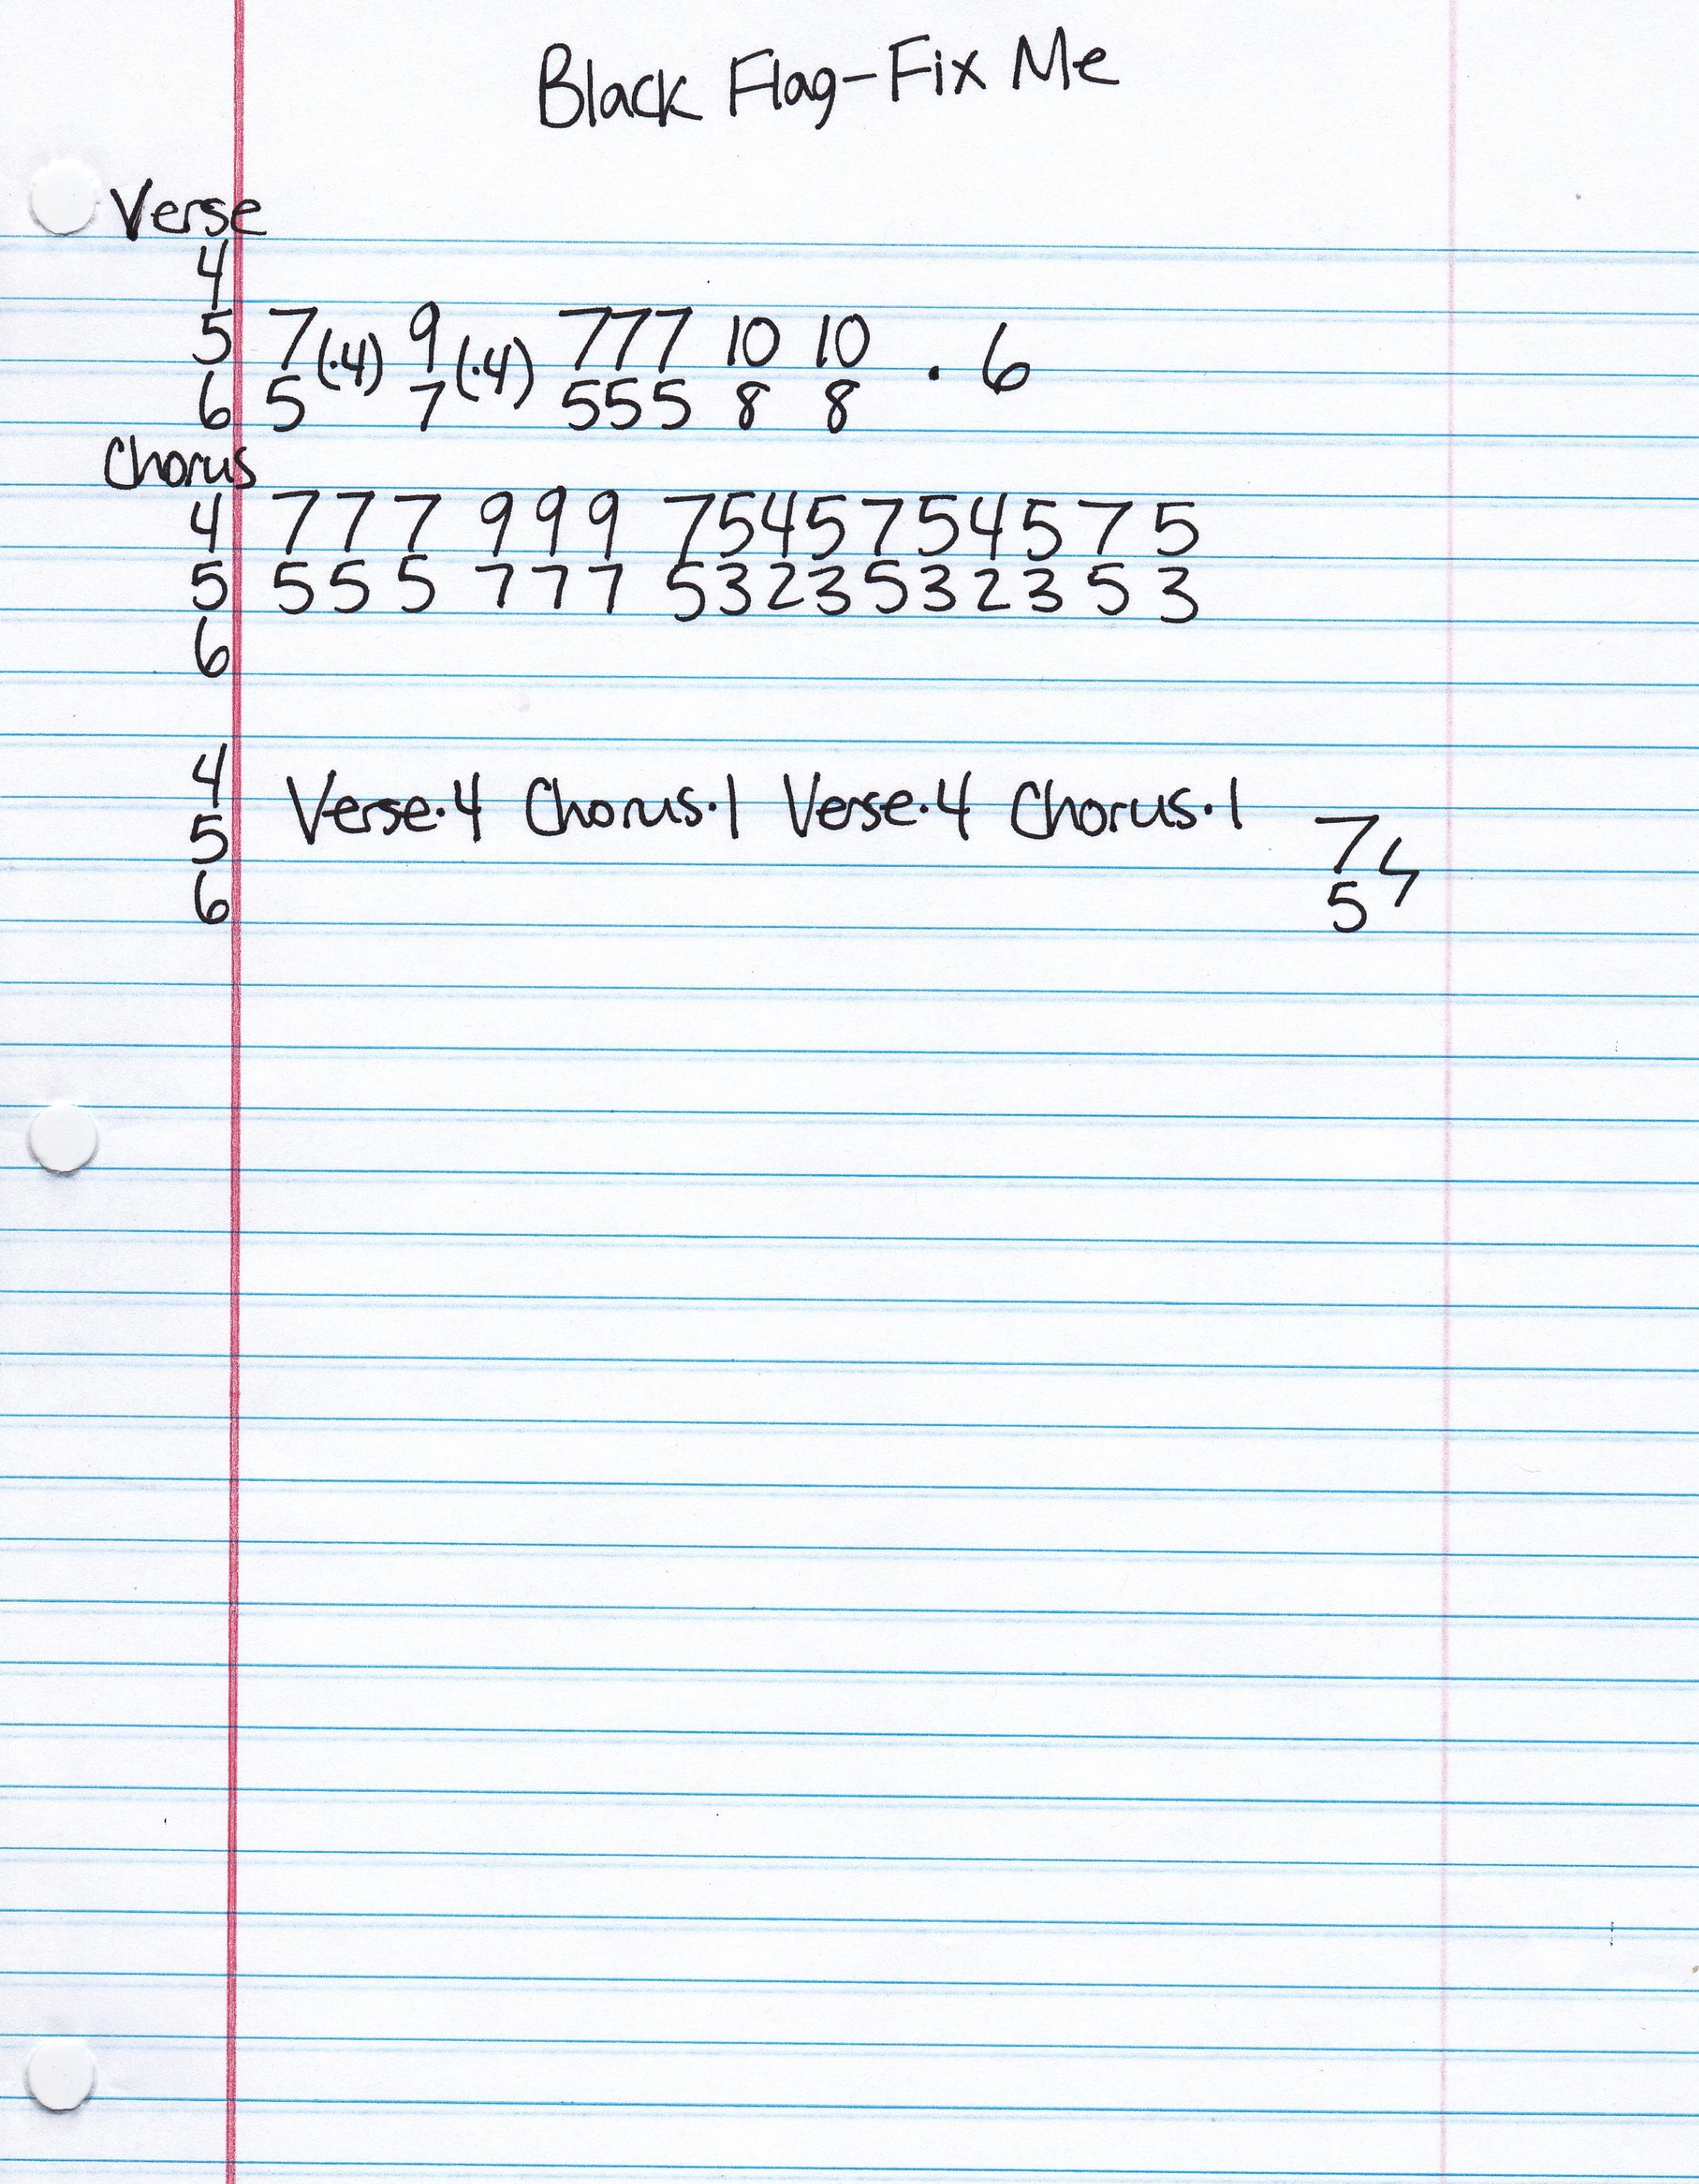 Black Flag-Fix Me
Verse
4
5 7(·4) 9(·4) 777 10 10 · 6
6 5 7 555 8 8
Chorus
4 7 7 7 9 9 9 7 5 4 5 7 5 4 5 7 5
5 5 5 5 7 7 7 5 3 2 3 5 3 2 3 5 3
6
4 Verse·4 Chorus·1 Verse·4 Chorus·1
5 7
6 5